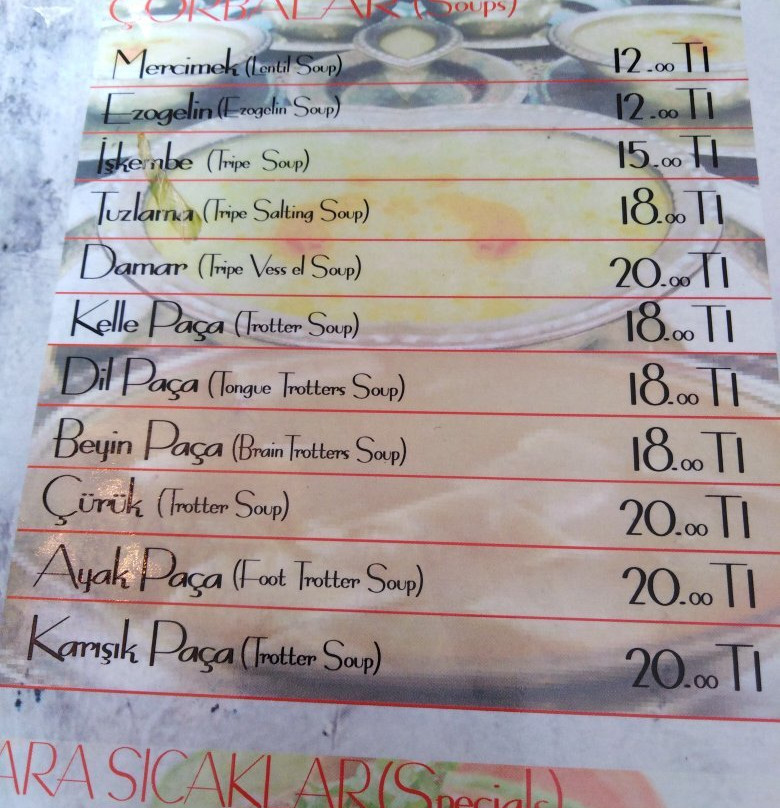 ÇORBALAR (Soups)
Mercimek (Lentil Soup) 12.00 Tl
Ezogelin (Ezogelin Soup) 12.00 Tl
İşkembe (Tripe Soup) 15.00 Tl
Tuzlama (Tripe Salting Soup) 18.00 Tl
Damar (Tripe Vess el Soup) 20.00 Tl
Kelle Paça (Trotter Soup) 18.00 Tl
Dil Paça (Tongue Trotters Soup) 18.00 Tl
Beyin Paça (Brain Trotters Soup) 18.00 Tl
Çürük (Trotter Soup) 20.00 Tl
Ayak Paça (Foot Trotter Soup) 20.00 Tl
Karışık Paça (Trotter Soup) 20.00 Tl
ARA SICAKLAR (Specials)